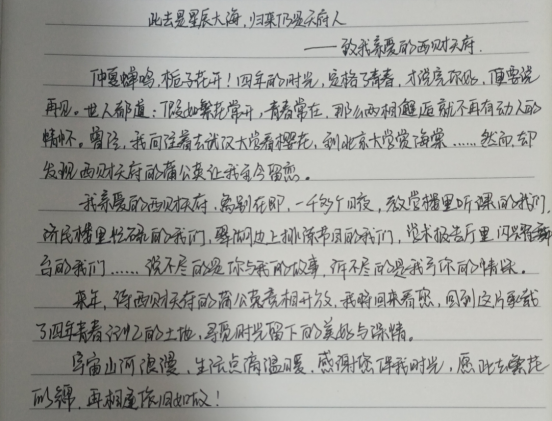 此去是星辰大海,归来仍是天府人
——致我亲爱的西财天府.
仲夏蝉鸣,栀子花开!四年的时光,定格了青春,才说完你好,便要说
再见。世人都道:假如繁花常开,青春常在,那么两相邂逅就不再有动人的
情怀。曾经,我向往着去武汉大学看樱花,到北京大学赏海棠……然而,却
发现西财天府的蒲公英让我至今留恋。
我亲爱的西财天府,离别在即,一千多个日夜,教学楼里听课的我们,
济民楼里忙碌的我们,翠湖边上排练节目的我们,学术报告厅里闪耀舞
台的我们……说不尽的是你与我的故事,诉不尽的是我与你的情缘。
来年,待西财天府的蒲公英竞相开放,我将回来看您,回到这片承载
了四年青春记忆的土地,寻觅时光留下的美好与深情。
宇宙山河浪漫,生活点滴温暖,感谢您伴我时光,愿此去繁花
似锦,再相逢依旧如故!